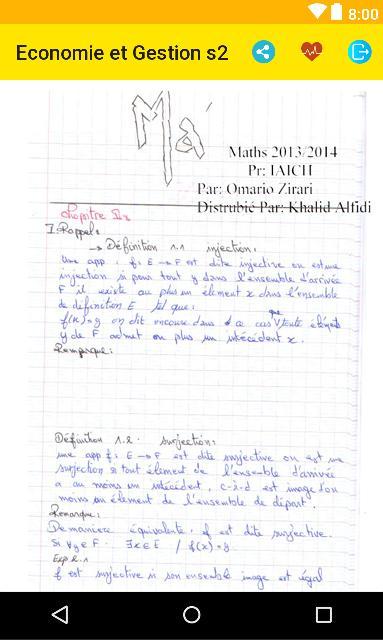 8:00
Economie et Gestion s2
Ma
Maths 2013/2014
Pr: IAICH
Par: Omario Zirari
Distrubié Par: Khalid Alfidi
chapitre I:
I. Rappels
→ Définition 1.1 injection:
Une app. f: E → F est dite injective ou est une
injection si pour tout y dans l'ensemble d'arrivée
F il existe au plus un élément x dans l'ensemble
de définition E tel que:
f(x)=y on dit encore dans cas que toute élément
y de F admet au plus un intécédent x.
Remarque:
Définition 1.2. surjection:
une app f: E → F est dite surjective ou est une
surjection si tout élément de l'ensemble d'arrivée
a au moins un intécédent, c-à-d est image d'au
moins un élément de l'ensemble de départ.
Remarque:
De manière équivalente, f est dite surjective.
Si ∀y∈F ∃x∈E / f(x)=y.
Exp 2.1
f est surjective si son ensemble image est égal